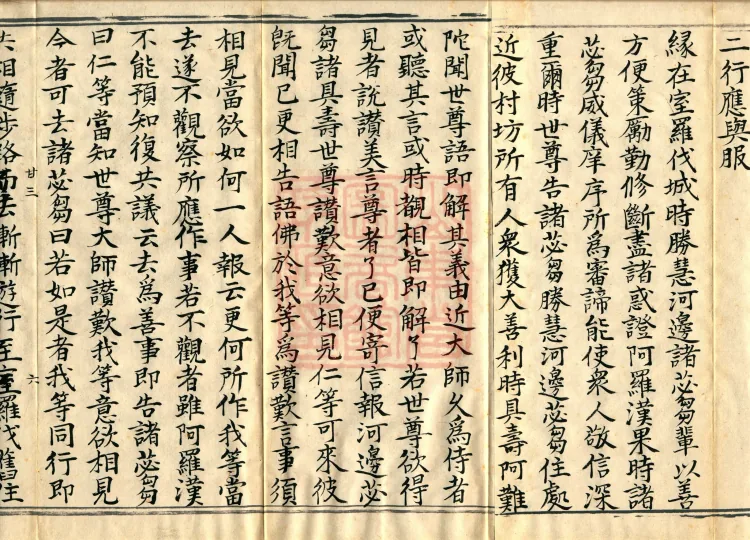 二行應與服
緣在室羅伐城時勝慧河邊諸苾芻輩以善
方便策勵勤修斷盡諸惑證阿羅漢果時諸
苾芻威儀庠序所為審諦能使眾人敬信深
重爾時世尊告諸苾芻勝慧河邊苾芻住處
近彼村坊所有人眾獲大善利時具壽阿難
陀聞世尊語即解其義由近大師久為侍者
或聽其言或時覩相皆即解了若世尊欲得
見者說讚美言尊者了已便寄信報河邊苾
芻諸具壽世尊讚歎意欲相見仁等可來彼
既聞已更相告語佛於我等為讚歎言事須
相見當欲如何一人報云更何所作我等當
去遂不觀察所應作事若不觀者雖阿羅漢
不能預知復共議云去為善事即告諸苾芻
曰仁等當知世尊大師讚歎我等意欲相見
今者可去諸苾芻曰若如是者我等同行即
廿三 六
共相隨涉路而去漸漸遊行至室羅伐舊住